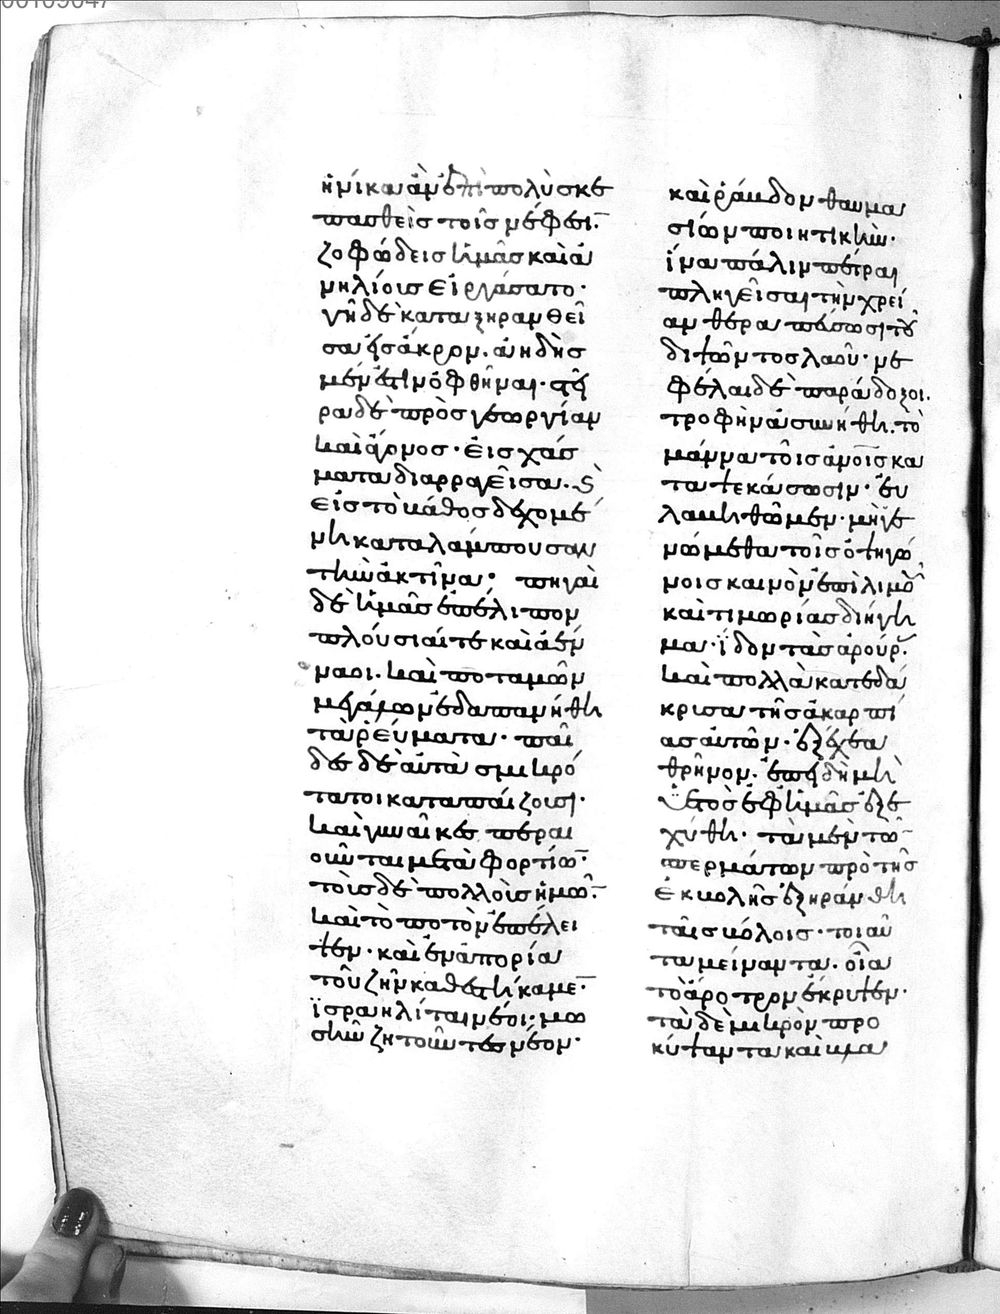 ἡνίκα ἂν ἐπιπολὺ σκε
πασθεὶς τοῖς νέφεσι.
ζοφώδεις ἡμᾶς καὶ ἀ
νηλίους εἰργάσατο·
γῆ δὲ καταξηρανθεῖ
σα εἰσάκρον. ἀηδὴς
μέν ἐστιν ὀφθῆναι· στεῖ
ρα δὲ πρὸς γεωργίαν
καὶ ἄγονος· εἰς χάσ
ματα διαρραγεῖσα.
εἰς τὸ βάθος δεχομέ
νη καταλάμπουσαν
τὴν ἀκτῖνα· πηγαὶ
δὲ ἡμᾶς ἐπέλιπον
πλούσιαί τε καὶ ἀέν
ναοι. καὶ ποταμῶν
μεγάλων ἐδαπανήθη
τὰ ῥεύματα· παῖ
δες δὲ αὐτὰ σμικρό
τατοι καταπαίζουσι·
καὶ γυναῖκες περαι
οῦνται μετὰ φορτίων·
τοῖς δὲ πολλοῖς ἡμῶν.
καὶ τὸ ποτὸν ἐπέλει
ψεν· καὶ ἐν ἀπορία
τοῦ ζῆν καθεστήκαμεν·
ϊσραηλίται νέοι· μω
σῆν ζητοῦντες νέον·
καὶ ῥάβδον θαυμα
σίων ποιητικήν·
ἵνα πάλιν πέτραι
πληγεῖσαι τὴν χρεί
αν θεραπεύσωσι τοῦ
διψῶντος λαοῦ· νε
φέλαι δὲ παράδοξοι.
τροφὴν ἀσυνήθη. τὸ
μάννα τοῖς ἀνοῖς κα
ταψεκάσωσιν· εὐ
λαβηθῶμεν· μὴ γε
νώμεθα τοῖς ὀψηγό
νοις καινὸν ἐπὶ λιμῷ
καὶ τιμωρίας διήγη
μα· ἴδον τὰς ἀρούρ.
καὶ πολλὰ κατεδά
κρυσα τῆς ἀκαρπί
ας αὐτῶν· ἐξέχεα
θρῆνον. ἐπειδὴ μὴ
ὑετὸς ἐφ ἡμᾶς ἐξε
χύθη· τὰ μὲν τῶν
σπερμάτων πρὸ τῆς
ἐκβολῆς ἐξηράνθη
ταῖς βόλοις· τοιαῦ
τα μείναντα. οἷα
τὸ ἄροτρον ἔκρυψεν·
τὰ δὲ μικρὸν προ
κύψαντα καὶ βλα